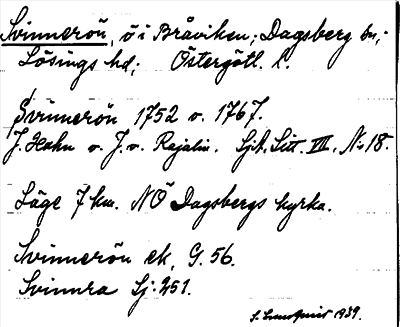 Svinnerön, ö i Bråviken; Dagsberg sn,
Lösings hd; Östergötl. l.
Svinnerön 1752 o. 1767.
J. Hahn o. J. v. Rajalin. Sjk. Litt. VII. No 18.
Läge 7 km. NÖ Dagsbergs kyrka.
Svinnerön ek. G. 56.
Svinnra Sj: 251.
S. Lundquist 1939.